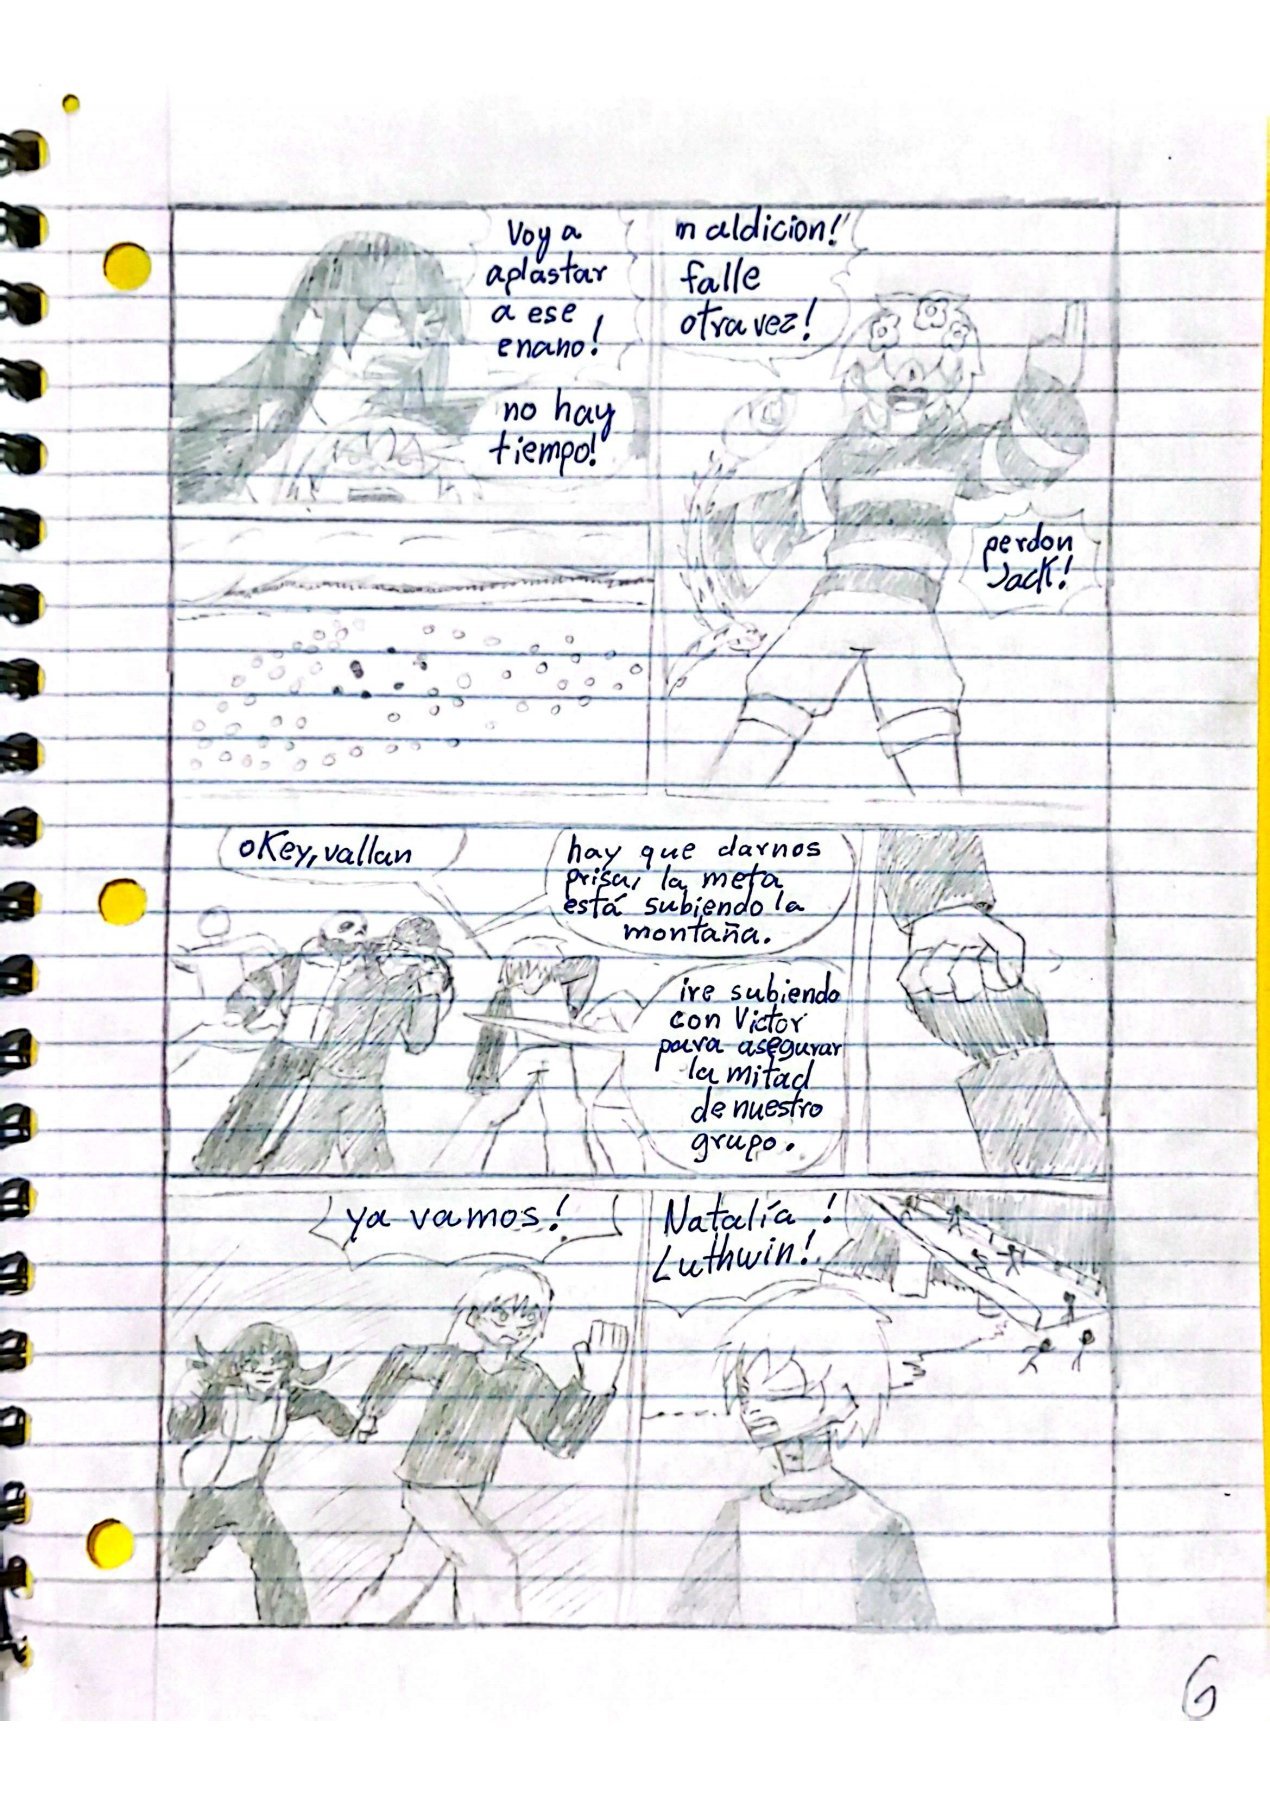 Voy a
aplastar
a ese
enano!
no hay
tiempo!
maldicion!
falle
otra vez!
perdon
Jack!
oKey, vallan
hay que darnos
prisa, la meta
está subiendo la
montaña.
ire subiendo
con Victor
para asegurar
la mitad
de nuestro
grupo.
ya vamos!
Natalía!
Luthwin!
6